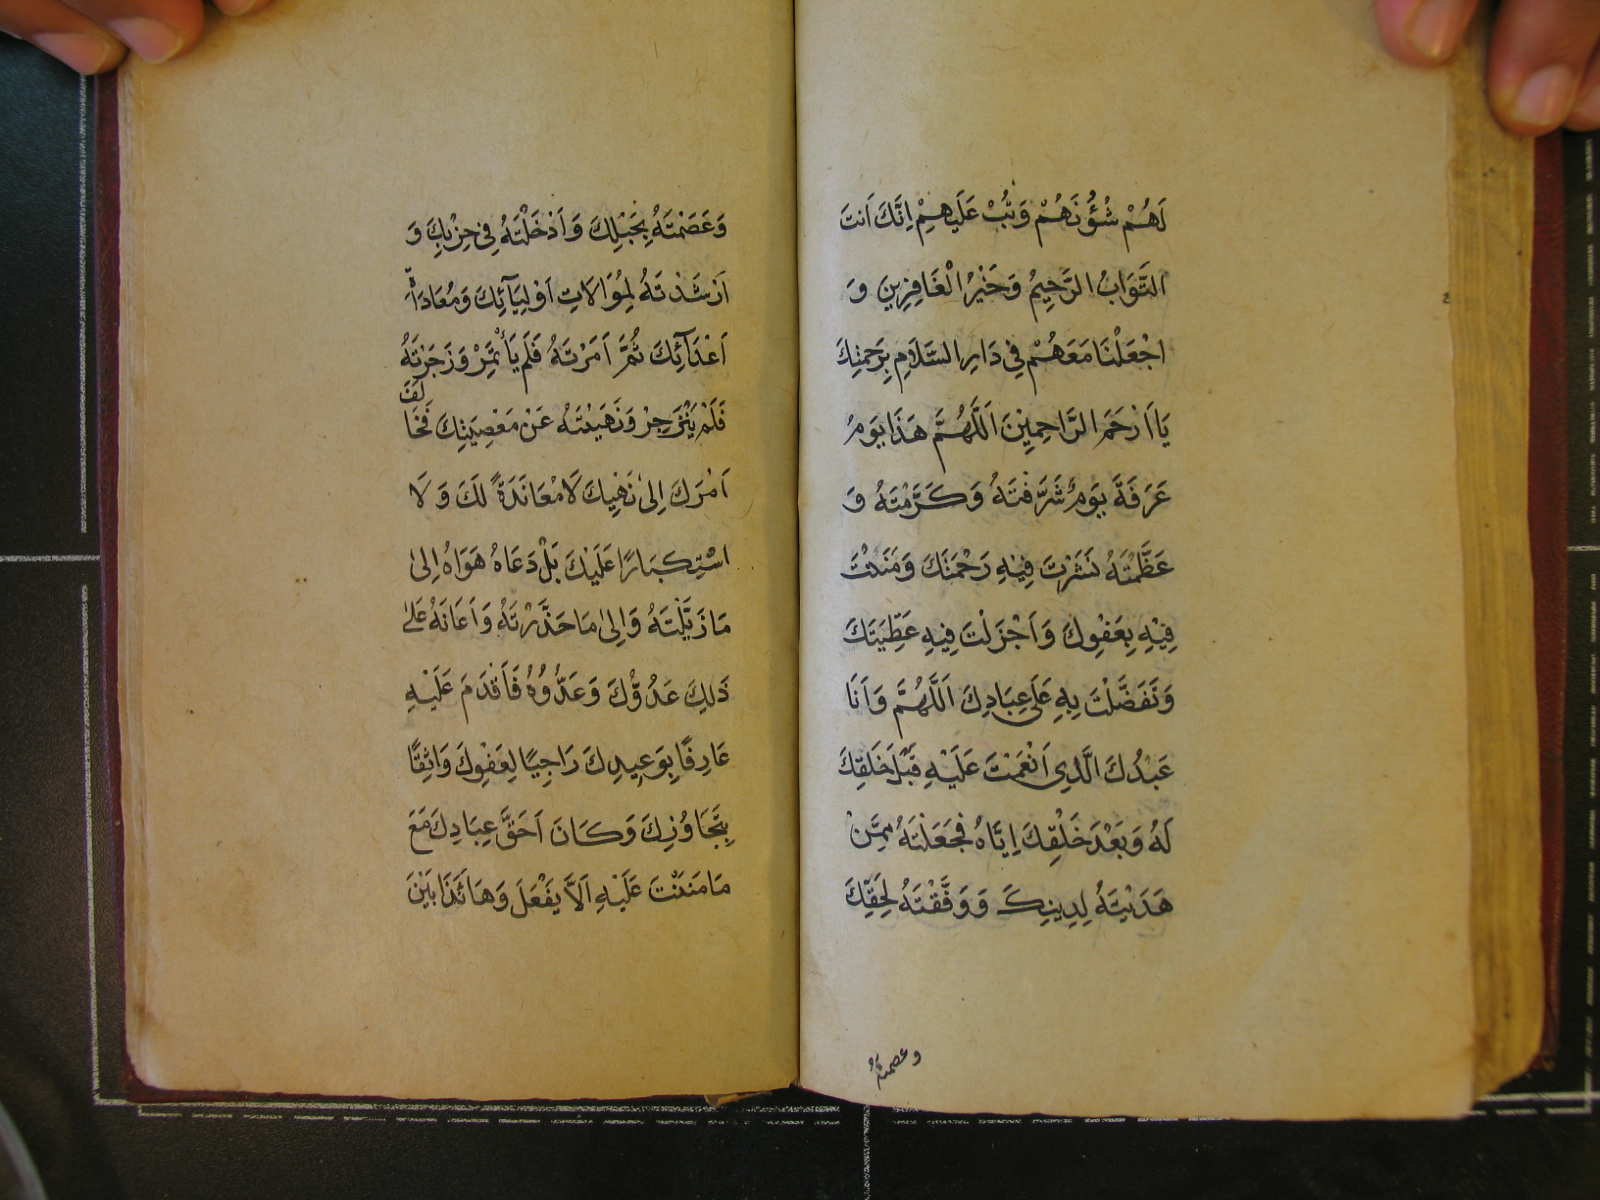 لَهُمْ شُؤُنَهُمْ وَتُبْ عَلَيهِمْ اِنَّكَ اَنتَ
التَّوَابُ الرَّحِيمُ وَخَيْرُ الْغَافِرِين وَ
اجْعَلْنَا مَعَهُمْ فِي دَارِ السَّلَامِ بِرَحمَتِكَ
يَا اَرْحَمَ الرَّاحِمِينَ اَللَّهُمَّ هَذَا يَومُ
عَرَفَةَ يَومٌ شَرَّفتَهُ وَكَرَّمْتَهُ وَ
عَظَّمْتَهُ نَشَرْتَ فِيهِ رَحْمَتَكَ وَمَنَنْتَ
فِيْهِ بِعَفوِكَ وَاَجْزَلْتَ فِيهِ عَطِّيَتَكَ
وَتَفَضَّلْتَ بِهِ عَلَى عِبَادِكَ اَللَّهُمَّ وَاَنَا
عَبْدُكَ الَّذِي اَنْعَمْتَ عَلَيْهِ قَبْلَ خَلقِكَ
لَهُ وَبَعْدَ خَلْقِكَ اِيَّاهُ فَجَعَلْتَهُ مِمَّنْ
هَدَيْتَهُ لِدِينِكَ وَوَفَّقْتَهُ لِحَقِّكَ
وعصمته
وَعَصَمْتَهُ بِحَبْلِكَ وَاَدْخَلْتَهُ فِي حِزْبِكَ وَ
اَرْشَدْتَهُ لِمُوَالَاتِ اَوْلِيَآئِكَ وَمُعَادَاةِ
اَعْدَآئِكَ ثُمَّ اَمَرْتَهُ فَلَم يَأْتَمِرْ وَزَجَرْتَهُ
فَلَمْ يَنْزَجِرْ وَنَهَيْتَهُ عَنْ مَعْصِيَتِكَ فَخَالَفَ
اَمْرَكَ اِلىٰ نَهْيِكَ لَا مُعَانَدَةً لَكَ وَلَا
اسْتِكبَارًا عَلَيْكَ بَلْ دَعَاهُ هَوَاهُ اِلىٰ
مَا زَيَّلْتَهُ وَاِلىٰ مَا حَذَّرْتَهُ وَاَعَانَهُ عَلىٰ
ذَلِكَ عَدُوُّكَ وَعَدُّوُهُ فَاَقدَمَ عَلَيْهِ
عَارِفًا بِوَعِيدِكَ رَاجِيًا لِعَفْوِكَ وَاثِقًا
بِتَجَاوُزِكَ وَكَانَ اَحَقَّ عِبَادِكَ مَعَ
مَا مَنَنْتَ عَلَيْهِ اَلَّا يَفْعَلَ وَهَا نَذَا بَيْنَ